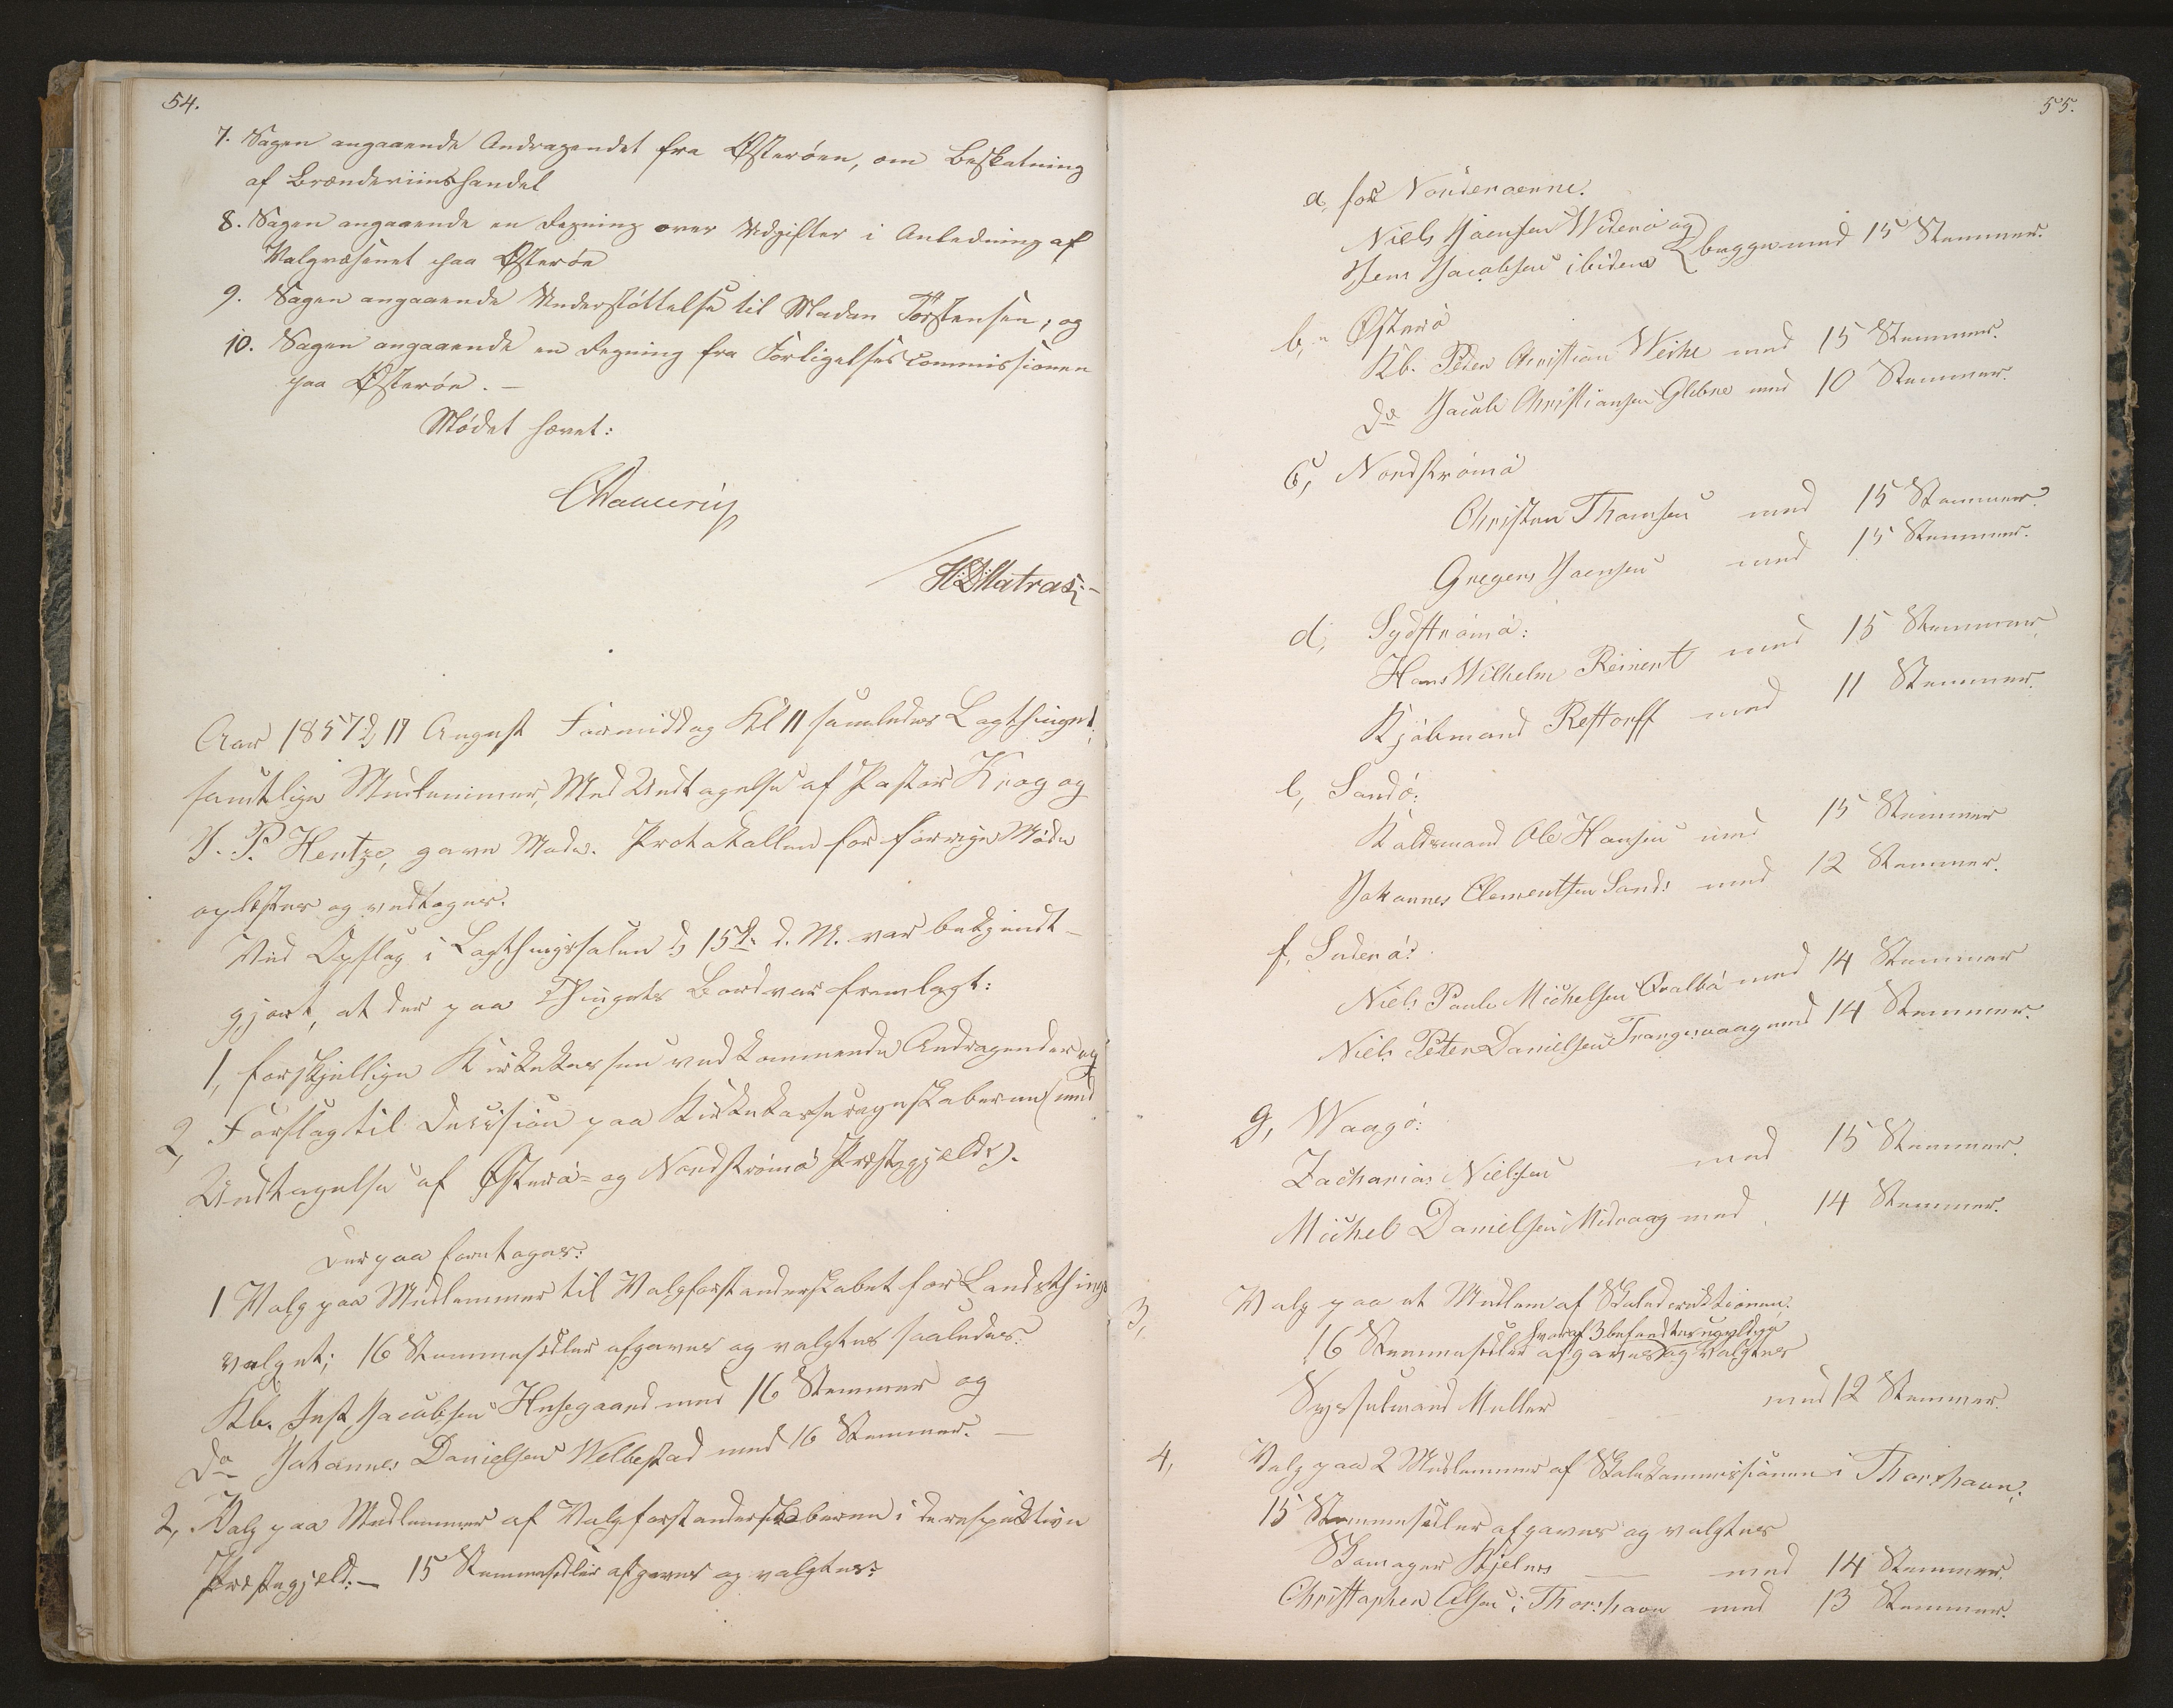 54.
7. Sagen angaaende Andragendet fra Østerøen, om Beskatning
af Brændeviinshandel
8. Sagen angaaende en Regning over Udgifter i Anledning af
Valgvæsenet paa Østerøe
9. Sagen angaaende Understøttelse til Madam Torstensen; og
10. Sagen angaaende en Regning fra Forligelsescommissionen
paa Østerøe. –
Mødet hævet:
Dahlerup
HDMatras
Aar 1857 d. 17 August Formiddag Kl 11 samledes Lagthinget;
samtlige Medlemmer, Med Undtagelse af Pastor Krog og
J. P. Hentze, gave Møde. Protokollen for forrige Møde
oplæstes og vedtoges.
Ved Opslag i Lagthingssalen d. 15de d. M. var bekjendt-
gjort, at der paa Thingets Bord var fremlagt:
1, forskjellige Kirkekassen vedkommende Andragender og
2, Forslag til Decision paa Kirkekasseregnskaberne (med
Undtagelse af Østerø- og Nordstrømø Præstegjæld).
Derpaa foretoges:
1 Valg paa Medlemmer til Valgforstanderskabet for Landsthings
valget; 16 Stemmesedler afgaves og valgtes saaledes:
Kb. Just Jacobsen Husegaard med 16 Stemmer og
do Johannes Danielsen Welbestad med 16 Stemmer. –
2, Valg paa Medlemmer af Valgforstanderskaberne i de respektive
Præstegjeld: – 15 Stemmesedler afgaves og valgtes:
55.
a, for Norderøerne.
Niels Joensen Widerø og
Jens Jacobsen ibidem } begge med 15 Stemmer.
b, " Østerø
Kb. Peder Christian Weihe med 15 Stemmer.
do Jacob Christiansen Glibre med 10 Stemmer.
c, Nordstrømø
Christen Thomsen med 15 Stemmer.
Gregers Joensen med 15 Stemmer.
d, Sydstrømø:
Hans Wilhelm Reinert med 15 Stemmer
Kjøbmand Restorff med 11 Stemmer.
e, Sandø:
Koldsmand Ole Hansen med 15 Stemmer
Johannes Clementsen Sand: med 12 Stemmer.
f, Suderø:
Niels Paule Michelsen Qvalbø med 14 Stemmer
Niels Peter Danielsen Trangisvaag med 14 Stemmer.
g, Waagø:
Zacharias Nielsen med 15 Stemmer.
Michel Danielsen Midvaag med 14 Stemmer.
3, Valg paa et Medlem af Skoledirektionen.
hvoraf 3 befandtes ugyldige
16 Stemmesedler afgaves og valgtes
Sysselmand Müller med 12 Stemmer.
4, Valg paa 2 Medlemmer af Skolekommissionen i Thorshavn;
15 Stemmesedler afgaves og valgtes
Skomager Kjelnes – med 14 Stemmer.
Christopher Olsen i Thorshavn med 13 Stemmer.